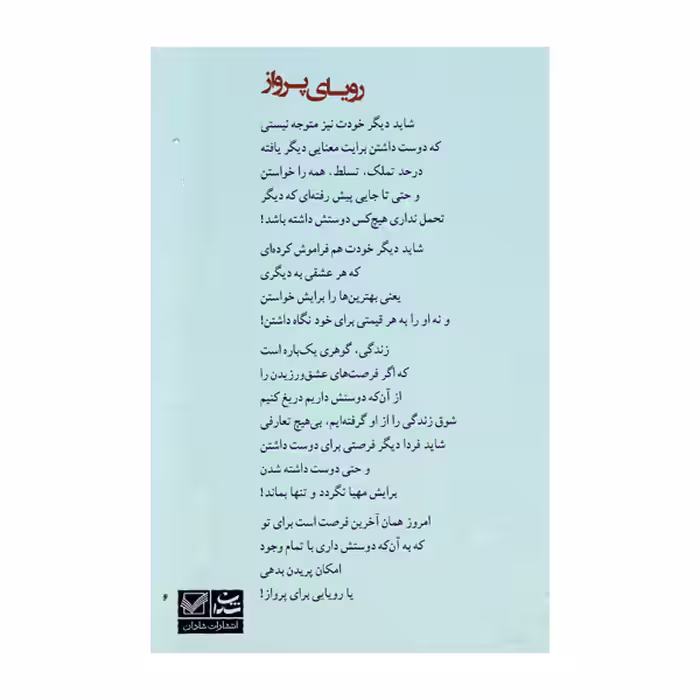 رویای پرواز
شاید دیگر خودت نیز متوجه نیستی
که دوست داشتن برایت معنایی دیگر یافته
درحد تملک، تسلط، همه را خواستن
و حتی تا جایی پیش رفته‌ای که دیگر
تحمل نداری هیچ‌کس دوستش داشته باشد!
شاید دیگر خودت هم فراموش کرده‌ای
که هر عشقی به دیگری
یعنی بهترین‌ها را برایش خواستن
و نه او را به هر قیمتی برای خود نگاه داشتن!
زندگی، گوهری یک‌باره است
که اگر فرصت‌های عشق‌ورزیدن را
از آن‌که دوستش داریم دریغ کنیم
شوق زندگی را از او گرفته‌ایم، بی‌هیچ تعارفی
شاید فردا دیگر فرصتی برای دوست داشتن
و حتی دوست داشته شدن
برایش مهیا نگردد و تنها بماند!
امروز همان آخرین فرصت است برای تو
که به آن‌که دوستش داری با تمام وجود
امکان پریدن بدهی
یا رویایی برای پرواز!
۶
شادان
انتشارات شادان